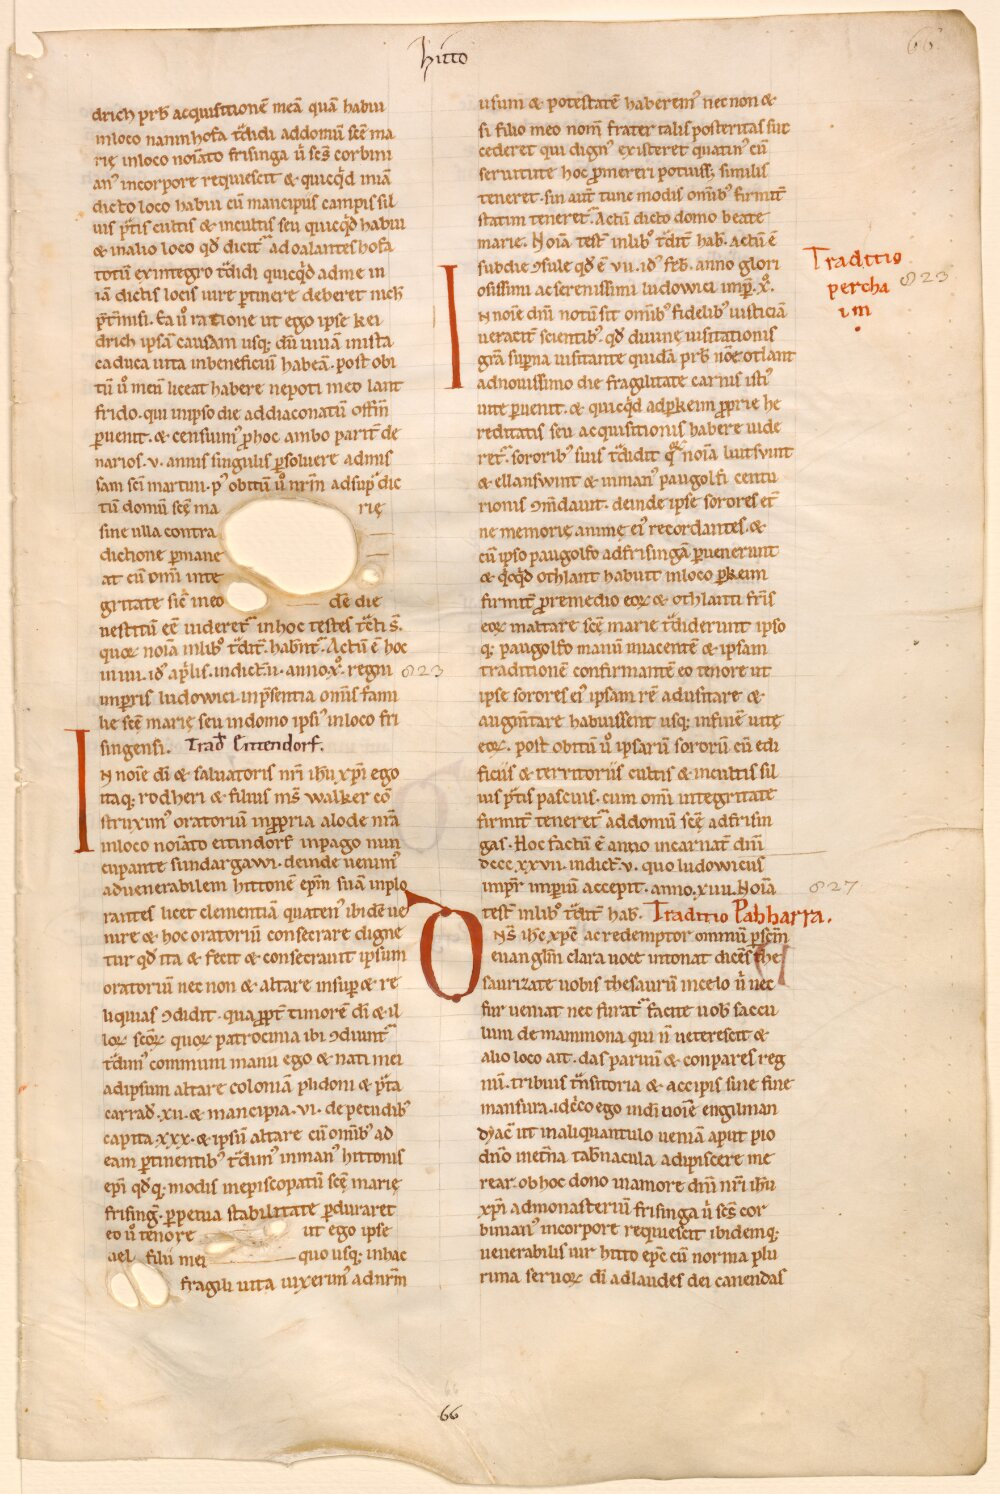 hitto
66
drich prb̄ acquisitionē meā quā habui
inloco naninhofa t̄didi addomū scē ma
rię inloco noīato frisinga ū sc̄s corbini
anꝰ incorpore requiescit & quicq̄d iniā
dicto loco habui cū mancipiis campis sil
uis p̄tis cultis & incultis seu quicq̄d habui
& inalio loco qd̄ dicit̄ adoalanteshofa
totū exintegro t̄didi quicq̄d adme in
iā dictis locis iure ꝑtinere deberet nich̄
p̄t̄misi. Ea ū ratione ut ego ipse kei
drich ipsā causam usq; dū uiuā inista
caduca uita inbeneficiū habeā. post obi
tū ū meū liceat habere nepoti meo lant
frido. qui inipso die addiaconatū offm̄
ꝑuenit. & censuimꝰ ꝓhoc ambo parit̄ de
narios. v. annis singulis ꝑsoluere admis
sam sc̄i martini. pꝰ obitū ū nr̄m adsup̄dic
tū domū scę ma rię
sine ulla contra
dictione ꝑmane
at cū om̄i inte
gritate sic̄ ineo dē die
uestitū eē uideret̄ inhoc testes t̄cti s̄.
quoꝝ noīa inlibꝰ t̄dit̄. habn̄t. Actū ē hoc
in iiii. id̄ ap̄lis. indict̄. ii. anno. x̊. regni 823
imp̄ris ludowici inp̄sentia om̄is fami
lię scē marię seu indomo ipsiꝰ inloco fri
singensi. Trad̄ Eittendorf.
IN noīe dī & saluatoris nr̄i ih̄u xp̄i ego
itaq; rodheri & filius ms̄ walker cō
struximꝰ oratoriū inꝓpria alode nr̄a
inloco noīato eitindorf inpago nun
cupante sundargawi. deinde uenimꝰ
aduenerabilem hittonē ep̄m suā inplo
rantes licet clementiā quatenꝰ ibidē ue
nire & hoc oratoriū consecrare digne
tur qd̄ ita & fecit & consecrauit ipsum
oratoriū nec non & altare insuꝑ & re
liquias ꝯdidit. quaꝓpt̄ timorē dī & il
loꝝ sc̄oꝝ quoꝝ patrocinia ibi ꝯdiunt̄
t̄dimꝰ communi manu ego & nati mei
adipsum altare coloniā plidoni & p̄ta
carrad̄. xii. & mancipia. vi. depecudibꝰ
capita. xxx. & ipsū altare cū om̄ibꝰ ad
eam ꝑtinentibꝰ t̄dimꝰ inmanꝰ hittonis
ep̄i qd̄q; modis inepiscopatū scę marię
frising̅. ꝑpetua stabilitate ꝑduraret
eo ū tenore ut ego ipse
uel filii mei quo usq; inhac
fragili uita uixerimꝰ adnr̄m
usum & potestatē haberemꝰ nec non &
si filio meo nom̄ frater talis posteritas suc
cederet qui dignꝰ existeret quatinꝰ cū
seruitute hoc ꝓmereri potuiss; similis
teneret. sin aut̄ tunc modis om̄ibꝰ firmit̄
statim teneret̄. Actū dicto domo beate
marie. Noīa test̄ inlibꝰ t̄dit̄ hab̄. Actū ē
subdie ꝯsule qd̄ ē vii. idꝰ feb̄. anno glori
osissimi ac serenissimi ludowici imp̄. x̊.
Traditio
percha
im
823
IN noīe dn̄i notū sit om̄ibꝰ fidelibꝰ iusticiā
ueracit̄ scientibꝰ. qd̄ diuinę uisitationis
grā suꝑna uisitante quidā prb̄ nōe otlant
adnouissimo die fragilitate carnis istiꝰ
uite ꝑuenit. & quicq̄d adꝑkeim ꝓprie he
reditatis seu acquisitionis habere uide
ret̄. sororibꝰ suis t̄didit qꝝ noīa luitsuint
& ellanswint & inmanꝰ paugolfi centu
rionis ꝯmdauit. deinde ipse sorores et̄
ne memorię animę eiꝰ recordantes. &
cū ipso paugolfo adfrisingā ꝑuenerunt
& q̄cq̄d othlant habuit inloco ꝑkeim
firmit̄ ꝓremedio eoꝝ & othlanti fr̄is
eoꝝ inaltare scē marie t̄diderunt ipso
q; paugolfo manū iniacentē & ipsam
traditionē confirmantē eo tenore ut
ipse sorores eiꝰ ipsam rē adusitare &
augm̄tare habuissent usq; infinē uitę
eoꝝ. post obitū ū ipsarū sororū cū edi
ficiis & territoriis cultis & incultis sil
uis p̄tis pascuis. cum om̄i integritate
firmit̄ teneret̄ addomū scę adfrisin
gas. Hoc factū ē anno incarnat̄ dn̄i
dccc. xxvii. indict̄. v. quo ludowicus
imp̄r imꝑiū accepit. anno. xiiii. Noīa 827
test̄ inlibꝰ t̄dit̄ hab̄. Traditio Pahharra.
DNS̄ ih̄c xp̄c ac redemptor omniū ꝑscm̄
euangl̄m clara uoce intonat dicēs the
saurizate uobis thesaurū incelo ū nec
fur ueniat nec furat̄ facite uob̄ saccu
lum de mammona qui n̄ ueterescit &
alio loco ait. das paruū & conpares reg
nū. tribuis t̄nsitoria & accipis sine fine
mansura. idc̄co ego indī noīe engilman
dyac̄ ut inaliquantulo ueniā aput pio
dn̄o inet̄na tab̄nacula adipiscere me
rear. ob hoc dono inamore dn̄i nr̄i ih̄u
xp̄i admonasteriū frisinga ū sc̄s cor
binianꝰ incorpore requiescit ibidemq;
uenerabilis uir hitto ep̄c cū norma plu
rima seruoꝝ dī adlaudes dei canendas
66